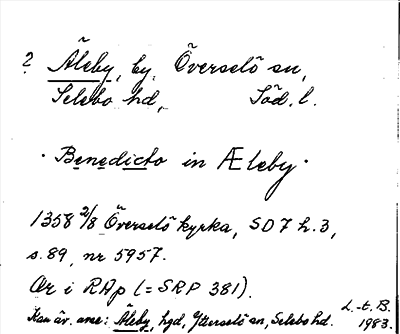 ? Äleby, by, Överselö sn,
Selebo hd, Söd. l.
· Benedicto in Æleby ·
1358 2/8 Överselö kyrka, SD 7 h. 3,
s. 89, nr 5957.
Or i RAp (= SRP 381).
L.-E. B.
Kan äv. avse: Äleby, hgd, Ytterselö sn, Selebo hd. 1983.